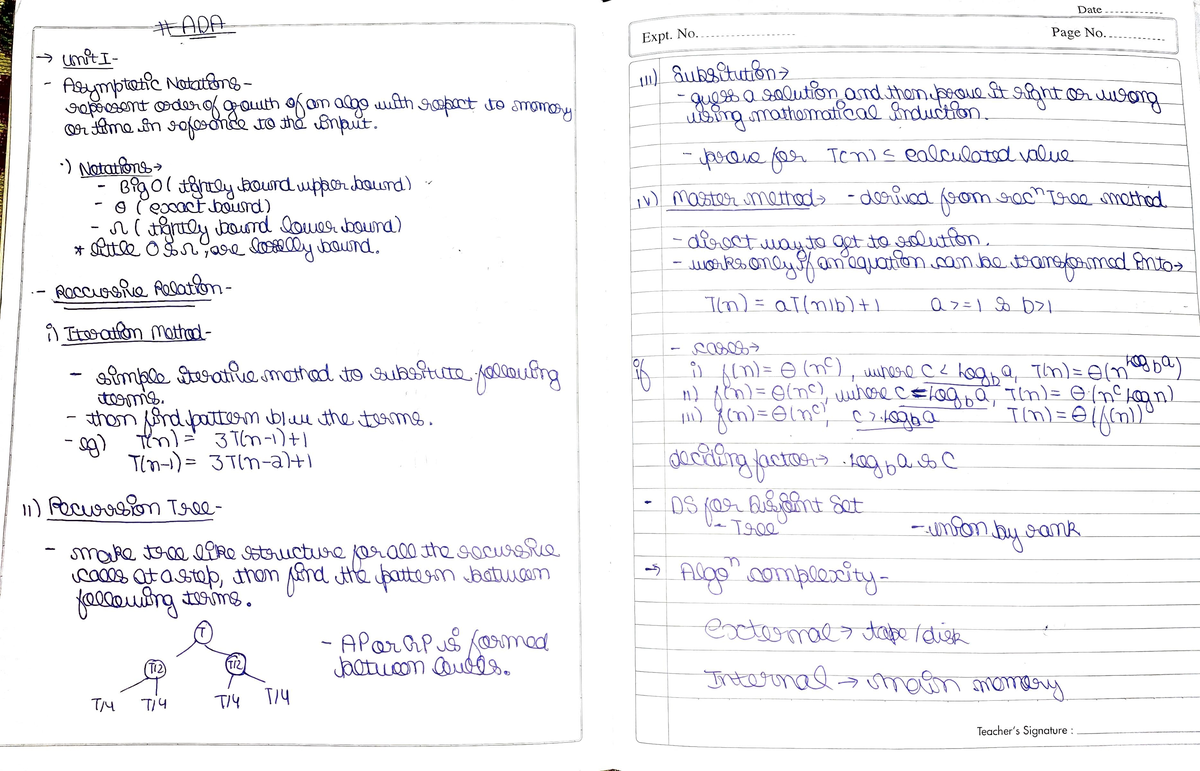 # ADA
→ Unit I -
- Asymptotic Notations -
represent order of growth of an algo with respect to memory
or time in reference to the input.
·) Notations →
- Big O ( tightly bound upper bound)
- θ ( exact bound)
- Ω ( tightly bound lower bound)
* little O & Ω, are loselly bound.
- Reccursive Relation -
i) Iteration Method -
- simple iterative method to substitute following
terms.
- then find pattern b/w the terms.
- eg) T(n) = 3T(n-1)+1
T(n-1) = 3T(n-2)+1
ii) Recurrsion Tree -
- make tree like structure for all the recursive
cases at a step, then find the pattern between
following terms.
T
T/2 T/2
T/4 T/4 T/4 T/4
- AP or GP is formed
between levels.
Date
Expt. No. Page No.
iii) Substitution →
- guess a solution and then prove it right or wrong
using mathematical induction.
- prove for T(n) ≤ calculated value
iv) Master method → - derived from recⁿ Tree method
- direct way to get to solution.
- works only if an equation can be transformed into →
T(n) = aT(n/b) + 1 a >= 1 & b>1
- cases →
if i) f(n) = θ (n^c), where c < log_b a, T(n) = θ(n^log_b a)
ii) f(n) = θ(n^c), where c = log_b a, T(n) = θ(n^c log n)
iii) f(n) = θ(n^c), c > log_b a T(n) = θ(f(n))
deciding factor → log_b a & c
- DS for Disjoint Set
- Tree - union by rank
→ Algoⁿ complexity -
external → tape / disk
Internal → main memory
Teacher's Signature :